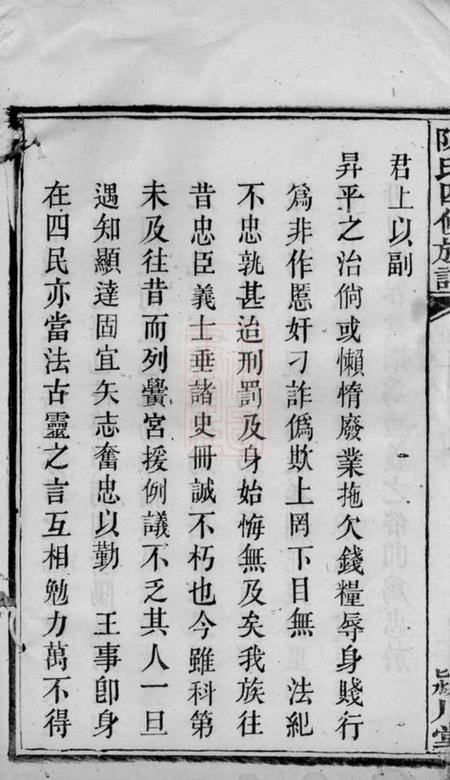 陳氏四修族譜
君上以副
昇平之治倘或懶惰廢業拖欠錢糧辱身賤行
爲非作慝奸刁詐僞欺上罔下目無 法紀
不忠孰甚迨刑罰及身始悔無及矣我族往
昔忠臣義士垂諸史冊誠不朽也今雖科第
未及往昔而列黌宮援例議不乏其人一旦
遇知顯達固宜矢志奮忠以勤 王事卽身
在四民亦當法古靈之言互相勉力萬不得
川堂